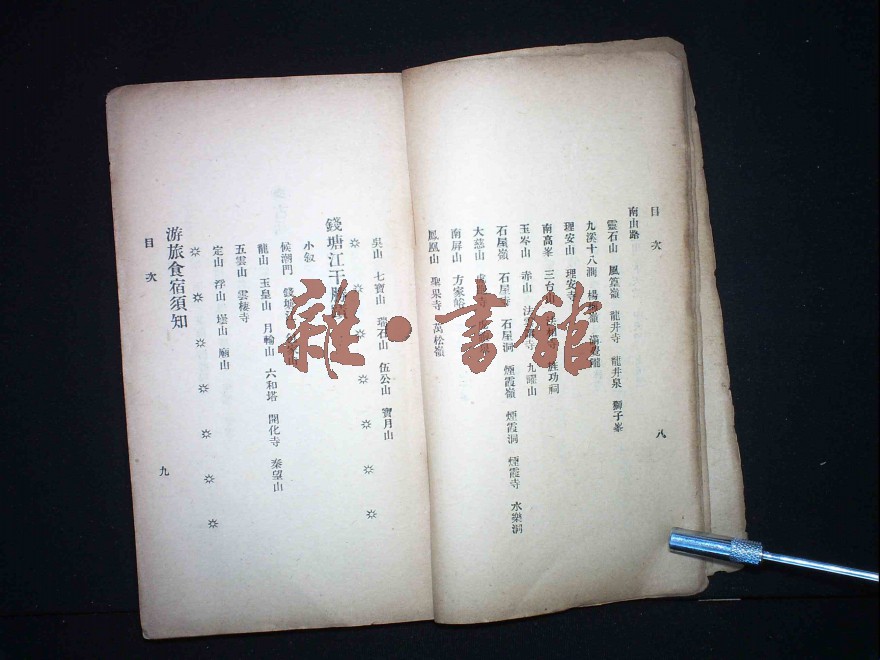 目次
八
南山路
靈石山 風篁嶺 龍井寺 龍井泉 獅子峯
九溪十八澗 楊梅嶺
理安山 理安寺
南高峯 三台山 旌功祠
玉岑山 赤山 法 寺 九曜山
石屋嶺 石屋 石屋洞 煙霞嶺 煙霞洞 煙霞寺 水樂洞
大慈山
南屏山 方家峪
鳳凰山 聖果寺 萬松嶺
吳山 七寶山 瑞石山 伍公山 寶月山
錢塘江干
小敍
候潮門 錢塘江
龍山 玉皇山 月輪山 六和塔 開化寺 秦望山
五雲山 雲棲寺
定山 浮山 廟山
游旅食宿須知
目次
九
雜·書館